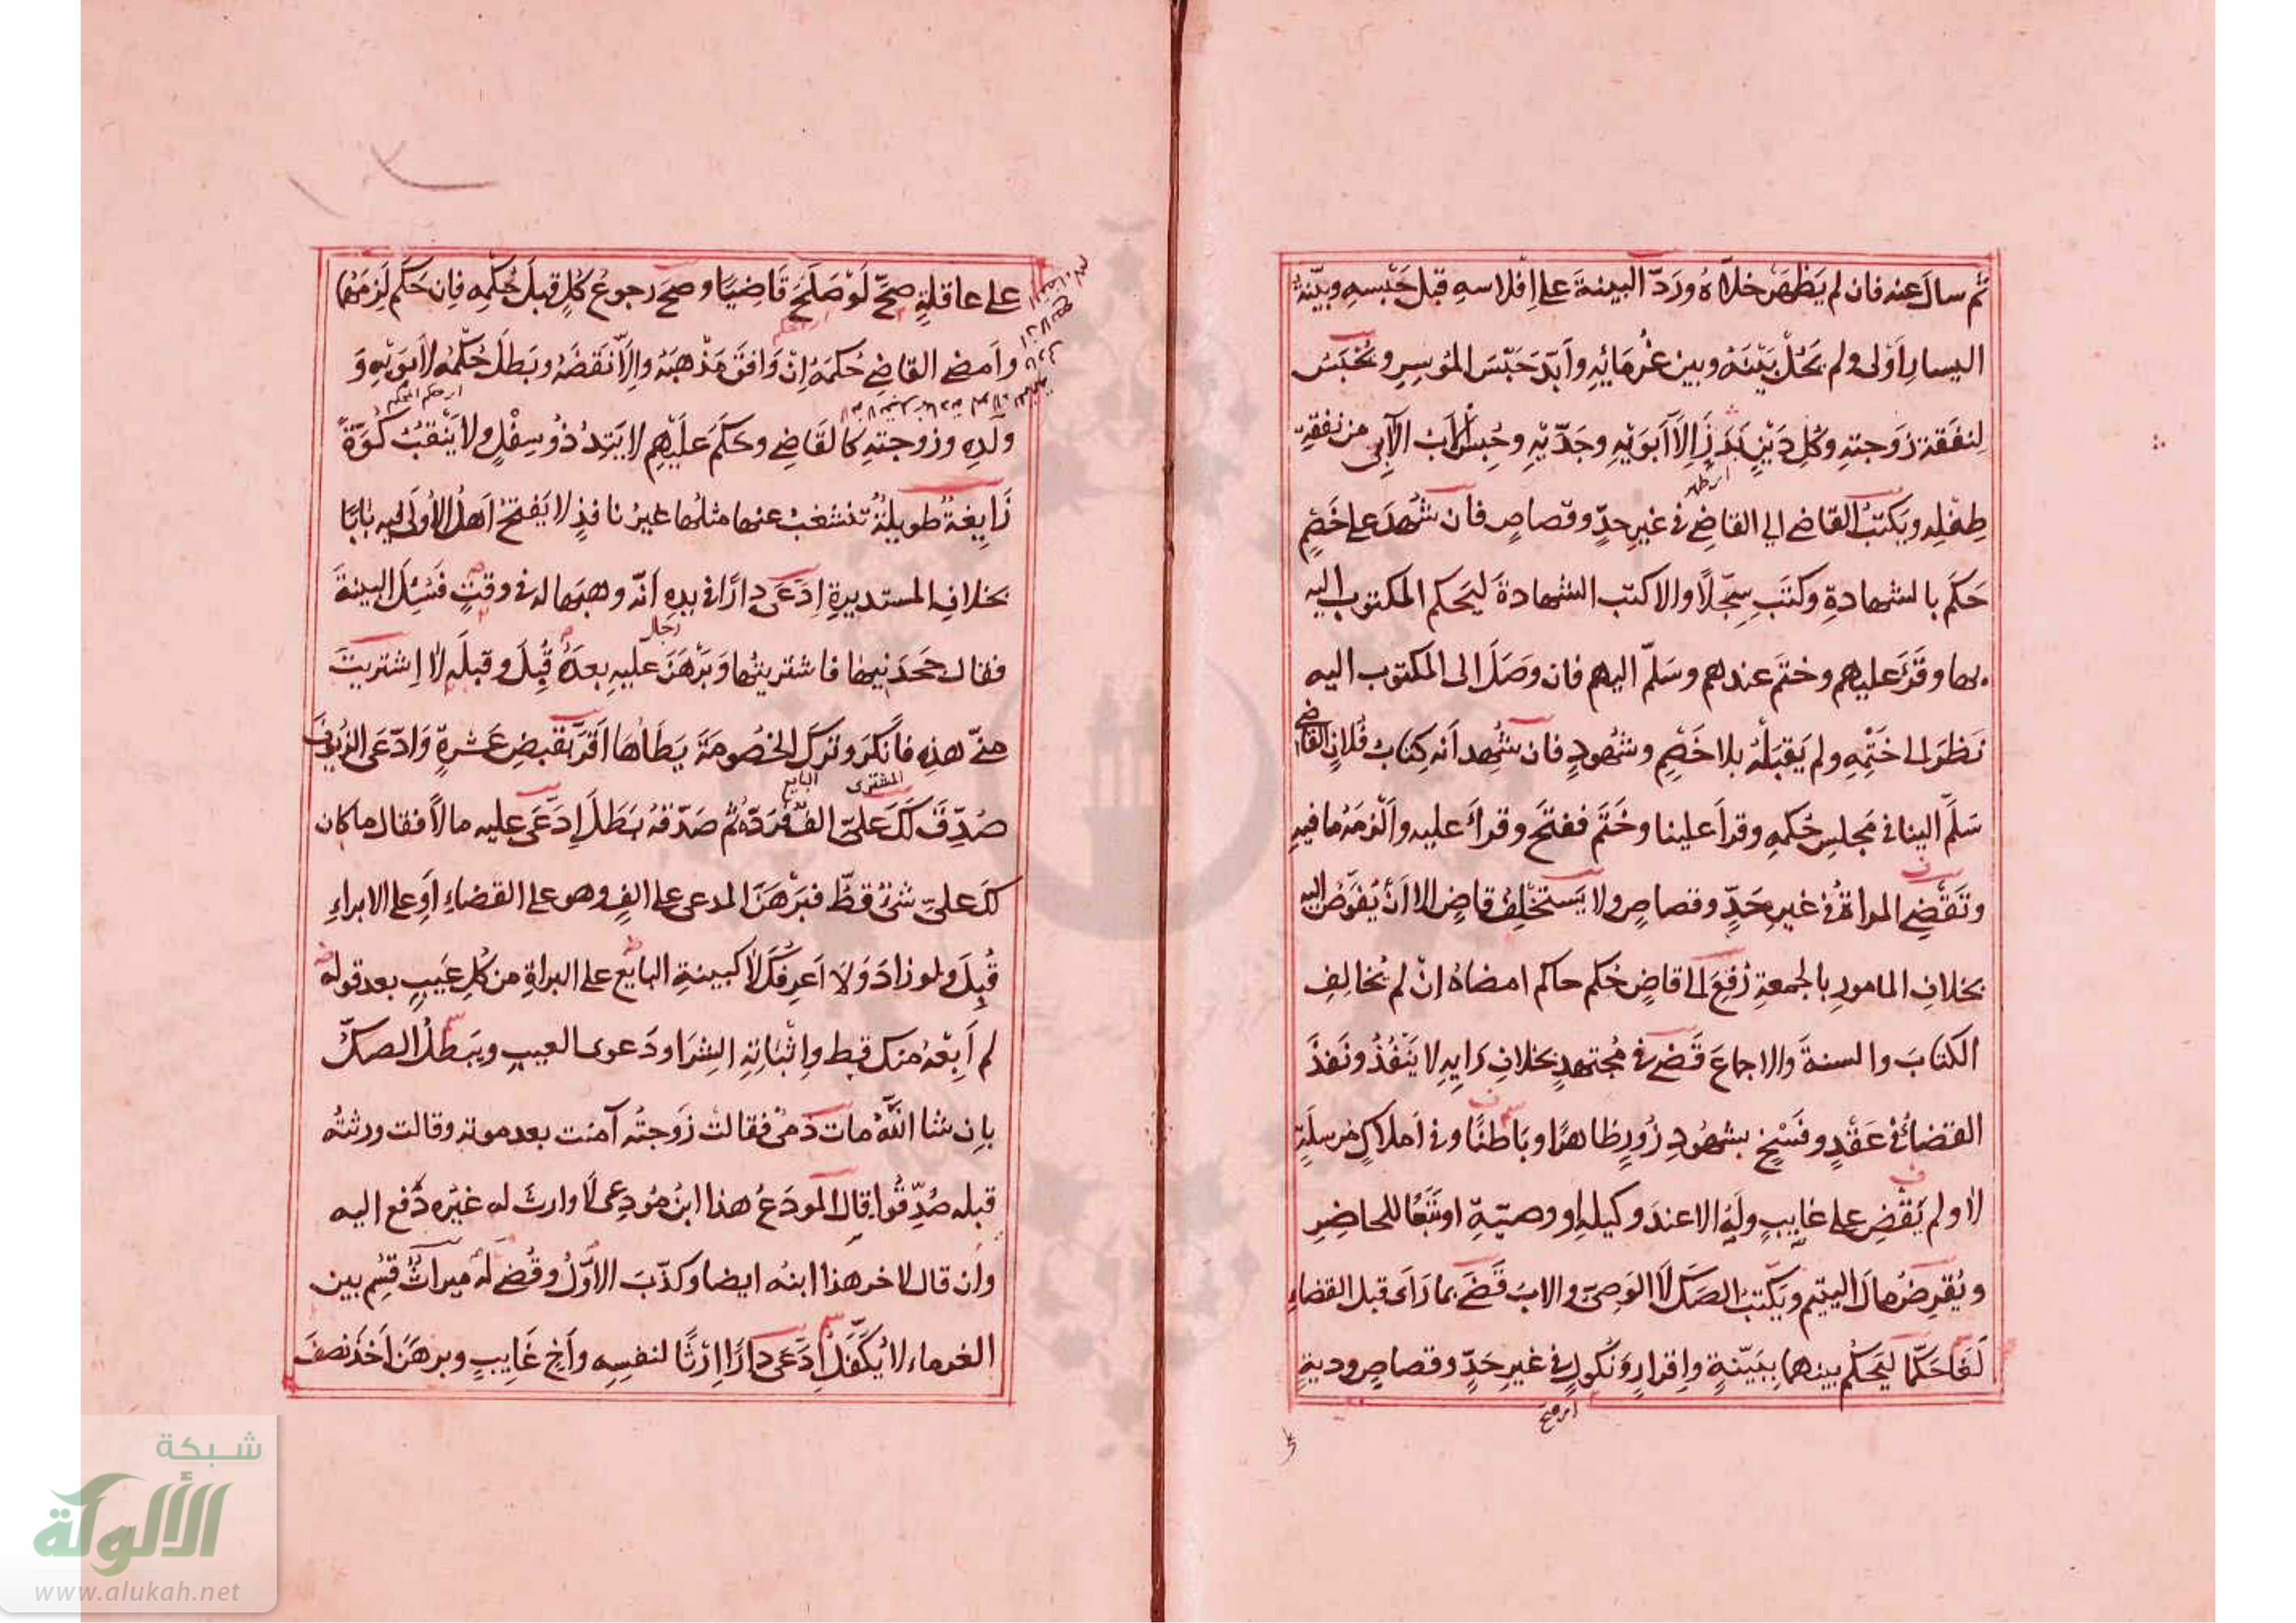 ثم سال عنه فان لم يَظْهَرْ خلاه ورَدّ البينةَ على اِفلاسهِ قبل حَبْسهِ وبيّنةُ
اليسارِ اَوْلى ولم يَحُلْ بَيْنَهُ وبين غُرَمائِهِ وأبَدَ حَبْسَ المُوسِرِ ويُحْبَسُ
لنفقةِ زَوجتهِ وكُلِ دَيْنٍ بَدَرَ اِلاّ اَبَوَيْهِ وجَدَّيْهِ وحُبِسَ الاب الآبى من نفقةِ
طِفلهِ ويَكتبُ القاضى الى القاضى فى غيرِ حدٍّ وقصاصٍ فان شُهِدَ على خَصْمٍ
حَكَمَ بالشهادةِ وكَتَبَ سِجِّلاً والا كتب الشهادةَ ليَحكم المكتوب اليه
بها وقَرَءَ عليهم وختَم عندهم وسَلّم اليهم فان وصَلَ الى المكتوب اليه
نَظَرَ الى خَتْمِهِ ولم يَقبَلْهُ بلا خَصْمٍ وشُهودٍ فان شُهِد اَنه كِتابُ فُلانٍ القاضى
سَلَّم الينا فى مَجلسِ حُكمِهِ وقرأ علينا وخَتَم ففتَح وقرأ عليه واَلْزمَهُ ما فيهِ
وتَقْضِى المراةُ فى غيرِ حَدٍّ وقصاصٍ ولا يَستخْلِفُ قاضٍ الا اَنْ يُفَوَّضَ اليه
بخلافِ المامورِ بالجمعةِ رُفِعَ الى قاضٍ حُكم حاكم امضاهُ اِنْ لم يُخالِفِ
الكتابَ والسنةَ والاجماعَ قَضى فى مُجتهدٍ بخلافِ رَايِهِ لا يَنْفُذُ ونَفَذَ
القضاءُ فى عَقْدٍ وفَسْخٍ بشهُودِ زُورٍ ظاهرًا وبَاطنًا وفى اَملاكٍ مُرسلَةٍ
لا ولم يَقْضِ على غايبٍ ولَهُ الا عند وكيلهِ او وصيّهِ او تَبَعًا للحاضرِ
ويُقرِضُ مالَ اليتيمِ ويَكتبُ الصكَ لا الوَصِىّ والاب قَضى بما رَاى قبل القضاءِ
لَغا حَكّما ليَحكُم بينهما بِبَيّنةٍ واِقرارٍ ونُكولٍ فى غيرِ حَدٍّ وقصاصٍ وديةٍ
اى صح
على عاقلةٍ صحّ لَوْ صَلَحَ قَاضِيًا وصح رجوعُ كُلٍ قبلَ حُكمِهِ فاِن حَكَم لَزِمَهُما
وأمضى القاضى حُكمَهُ اِنْ وَافَقَ مَذْهبَهُ والاّ نَقَضَهُ وبَطلَ حُكْمُهُ لاَبَوَيْهِ وَ
ولَدِهِ وزوجتهِ كالقاضى وحكَمَ عليْهِم لا يَتِدُ ذُو سِفْلٍ ولا يَنْقُبُ كُوّةً
زَايِغةٌ طويلةٌ تنشعبُ عنها مثلُها غيرُ نافذٍ لا يَفتحُ اَهلُ الاُولى فيه بَابًا
بخلافِ المستديرةِ اِدّعَى دارًا فى يدهِ اَنّه وهبَها له فى وقتٍ فسُئِلَ البينةَ
فقال جَحدَنيها فاشتريتُها وبَرْهَنَ عليهِ بعدَهُ قُبِلَ وقبلَهِ لا اِشتريتَ
منّى هذهِ فاَنكَرَ وتركَ الخُصومةَ يَطَأها اَقَرَّ بقبضِ عَشرةٍ وَادّعَى الزيوفَ
المشترى البايع
صُدِّقَ لَكَ عَلىّ الفٌ فَرَدّهُ ثُم صَدّقهُ بَطَلَ اِدّعَى عليه مالاً فقال ما كان
لكَ علىّ شئٌ قطُّ فبَرْهَنَ المدعى على الفٍ وهو على القضاءِ اَو على الابراءِ
قُبِلَ ولو زادَ وَلا اَعرِفُكَ لا كبينةِ البايعِ على البراةِ من كُلِ عَيبٍ بعد قوله
لم اَبِعْهُ منك قط واِثْباتِهِ الشِرَا ودَعوى العيبِ ويَبطلُ الصكُّ
بان شا اللّهُ مات ذمىٌ فقالتْ زَوجتُه آمنت بعد موته وقالت ورثتُه
قبله صُدِّقُوا قال المودَعُ هذا ابنُ مُودِعى لا وارثَ له غيرُه دُفع اليه
وان قال لاخر هذا ابنُه ايضا وكذّبَ الاوّلُ وقُضى لَهُ ميراثٌ قُسِم بين
الغرماء لا يُكَفَّلُ اِدّعَى دارًا اِرْثًا لنفسِهِ وأخٍ غَايِبٍ وبرهَنَ اَخذَ نصفَ
شبكة
الألوكة
www.alukah.net